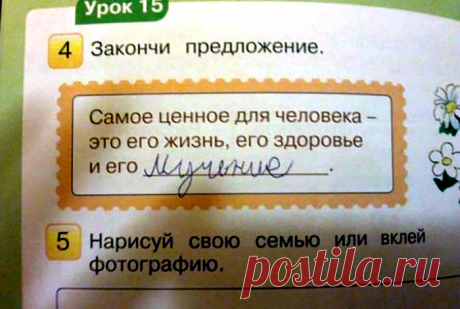 Урок 15
4 Закончи предложение.
Самое ценное для человека –
это его жизнь, его здоровье
и его мучение.
5 Нарисуй свою семью или вклей
фотографию.
postila.ru